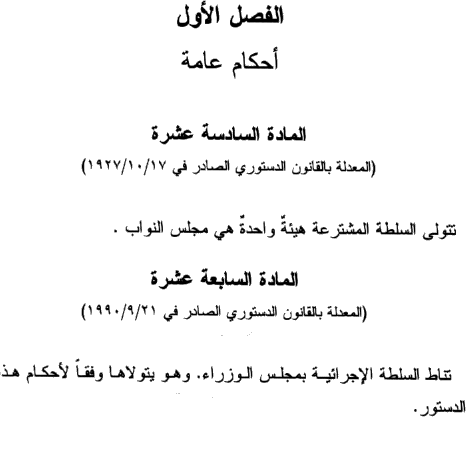 الفصل الأول
أحكام عامة
المادة السادسة عشرة
(المعدلة بالقانون الدستوري الصادر في ١٩٢٧/١٠/١٧)
تتولى السلطة المشترعة هيئةٌ واحدةٌ هي مجلس النواب .
المادة السابعة عشرة
(المعدلة بالقانون الدستوري الصادر في ١٩٩٠/٩/٢١)
تناط السلطة الإجرائية بمجلس الوزراء. وهو يتولاها وفقاً لأحكام هذ
الدستور.